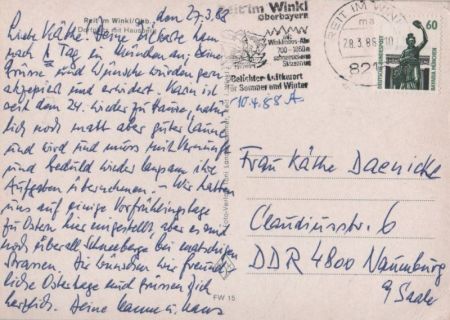 Reit im Winkl/Obb.
den 27.3.88
Liebe Käthe! Deine Postkarte kam
nach 1 Tag in München an, Deine
Grüsse und Wünsche wurden gern
akzeptiert und erwidert. Karin ist
seit dem 24. wieder zu Hause, natür
lich noch matt aber guter Laune
und wird und muss mit Vernunft
und Geduld wieder langsam ihre
Aufgaben übernehmen. - Wir hatten
uns auf einige Vorfrühlingstage
zu Ostern hier eingestellt aber es sind
noch überall Schneeberge bei matschigen
Strassen. Dir wünschen wir freund
liche Ostertage und grüssen Dich
herzlich. Deine Hanna u. Hans
FW 15
Reit im Winkl
Oberbayern
Winklmoos-Alm
700-1850 m
schneesicheres
Skizentrum
Beliebter Luftkurort
für Sommer und Winter
REIT IM WINKL
28.3.88
821
60
DEUTSCHE BUNDESPOST
BAVARIA MÜNCHEN
10.4.88 A.
Frau Käthe Daenicke
Claudiusstr. 6
DDR 4800 Naumburg
a/Saale